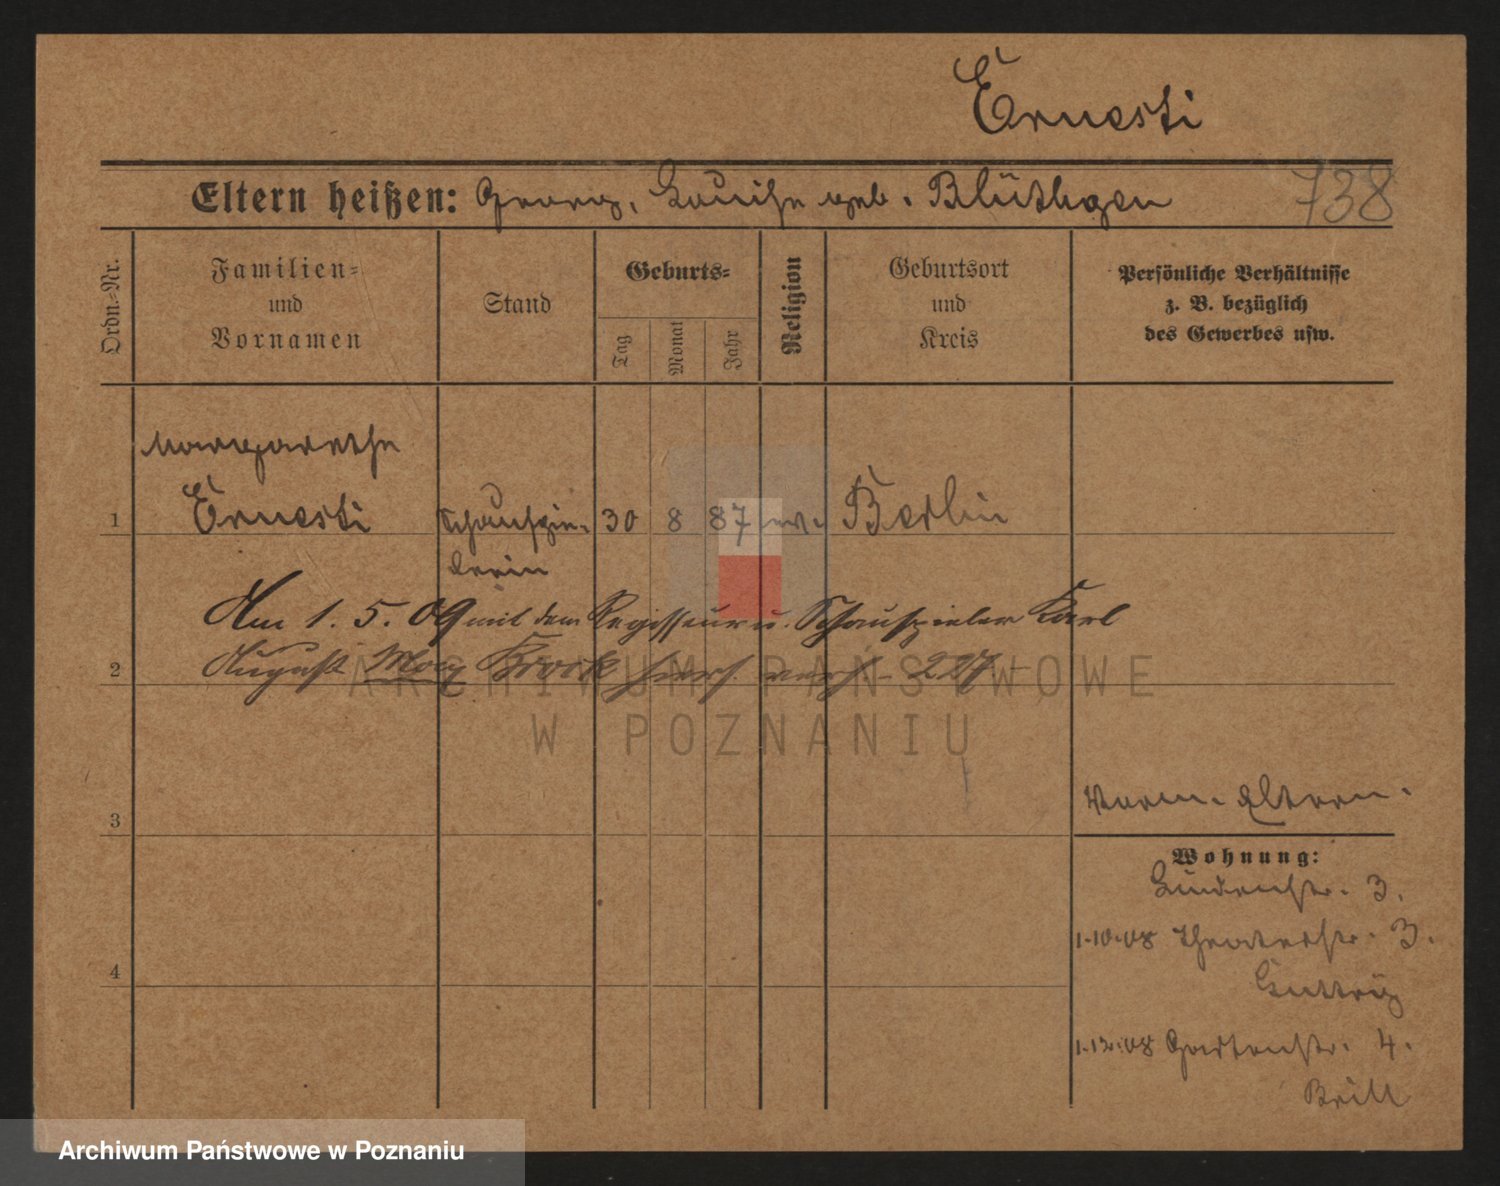 Ernesti
Eltern heißen: Georg, Louise geb. Blüthgen
738
Ordn.-Nr.
Familien-
und
Vornamen
Stand
Geburts-
Tag
Monat
Jahr
Religion
Geburtsort
und
Kreis
Persönliche Verhältnisse
z. B. bezüglich
des Gewerbes usw.
Margarethe
1 Ernesti Schauspie- 30 8 87 ev. Berlin
lerin
Am 1. 5. 09 mit dem Regisseur u. Schauspieler Karl
2 August Max Krock hiers. verh. 227
ARCHIWUM PAŃSTWOWE
W POZNANIU
Eltern.
3
Wohnung:
Lindenstr. 3.
1.10.08 Theaterstr. 3.
4
1.12.08 Gartenstr. 4.
Brill
Archiwum Państwowe w Poznaniu